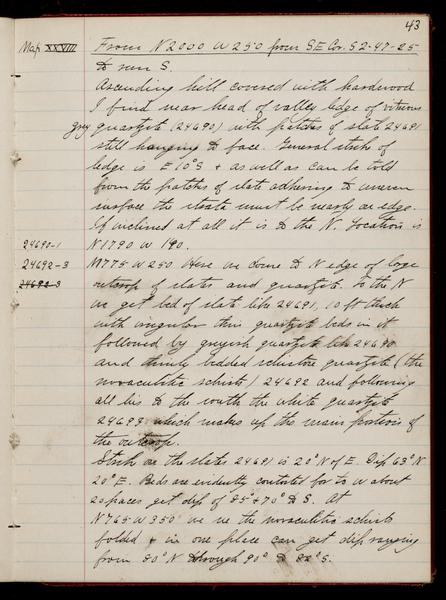 43
Map XXVIII
From N 2000 W 250 from SE Cor. S 2-47-25
to run S.
Ascending hill covered with hardwood
I find near head of valley ledge of vitreous
grey quartzite (24690) with patches of slate 24691
still hanging to face. General strike of
ledge is E 10° S + as well as can be told
from the patches of slate adhering to uneven
surface the strata must be nearly on edge.
If inclined at all it is to the N. Location is
24690-1 N 1790 W 190.
24692-3 N 775 W 250. Here we come to N edge of large
24692-3 outcrop of slates and quartzite. To the N
we get bed of slate like 24691, 10 ft thick
with irregular thin quartzite beds in it
followed by greyish quartzite like 24690
and thinly bedded schistose quartzite (the
novaculitic schists) 24692 and following
all this to the south the white quartzite
24693 which makes up the main portion of
the outcrop.
Strike on the slates 24691 is 20° N of E. Dip 63° N
20° E. Beds are evidently contorted for to W about
20 paces get dip of 85° + 70° to S. At
N 765 W 350 we see the novaculitic schists
folded + in one place can get dip ranging
from 80° N through 90° to 82° S.